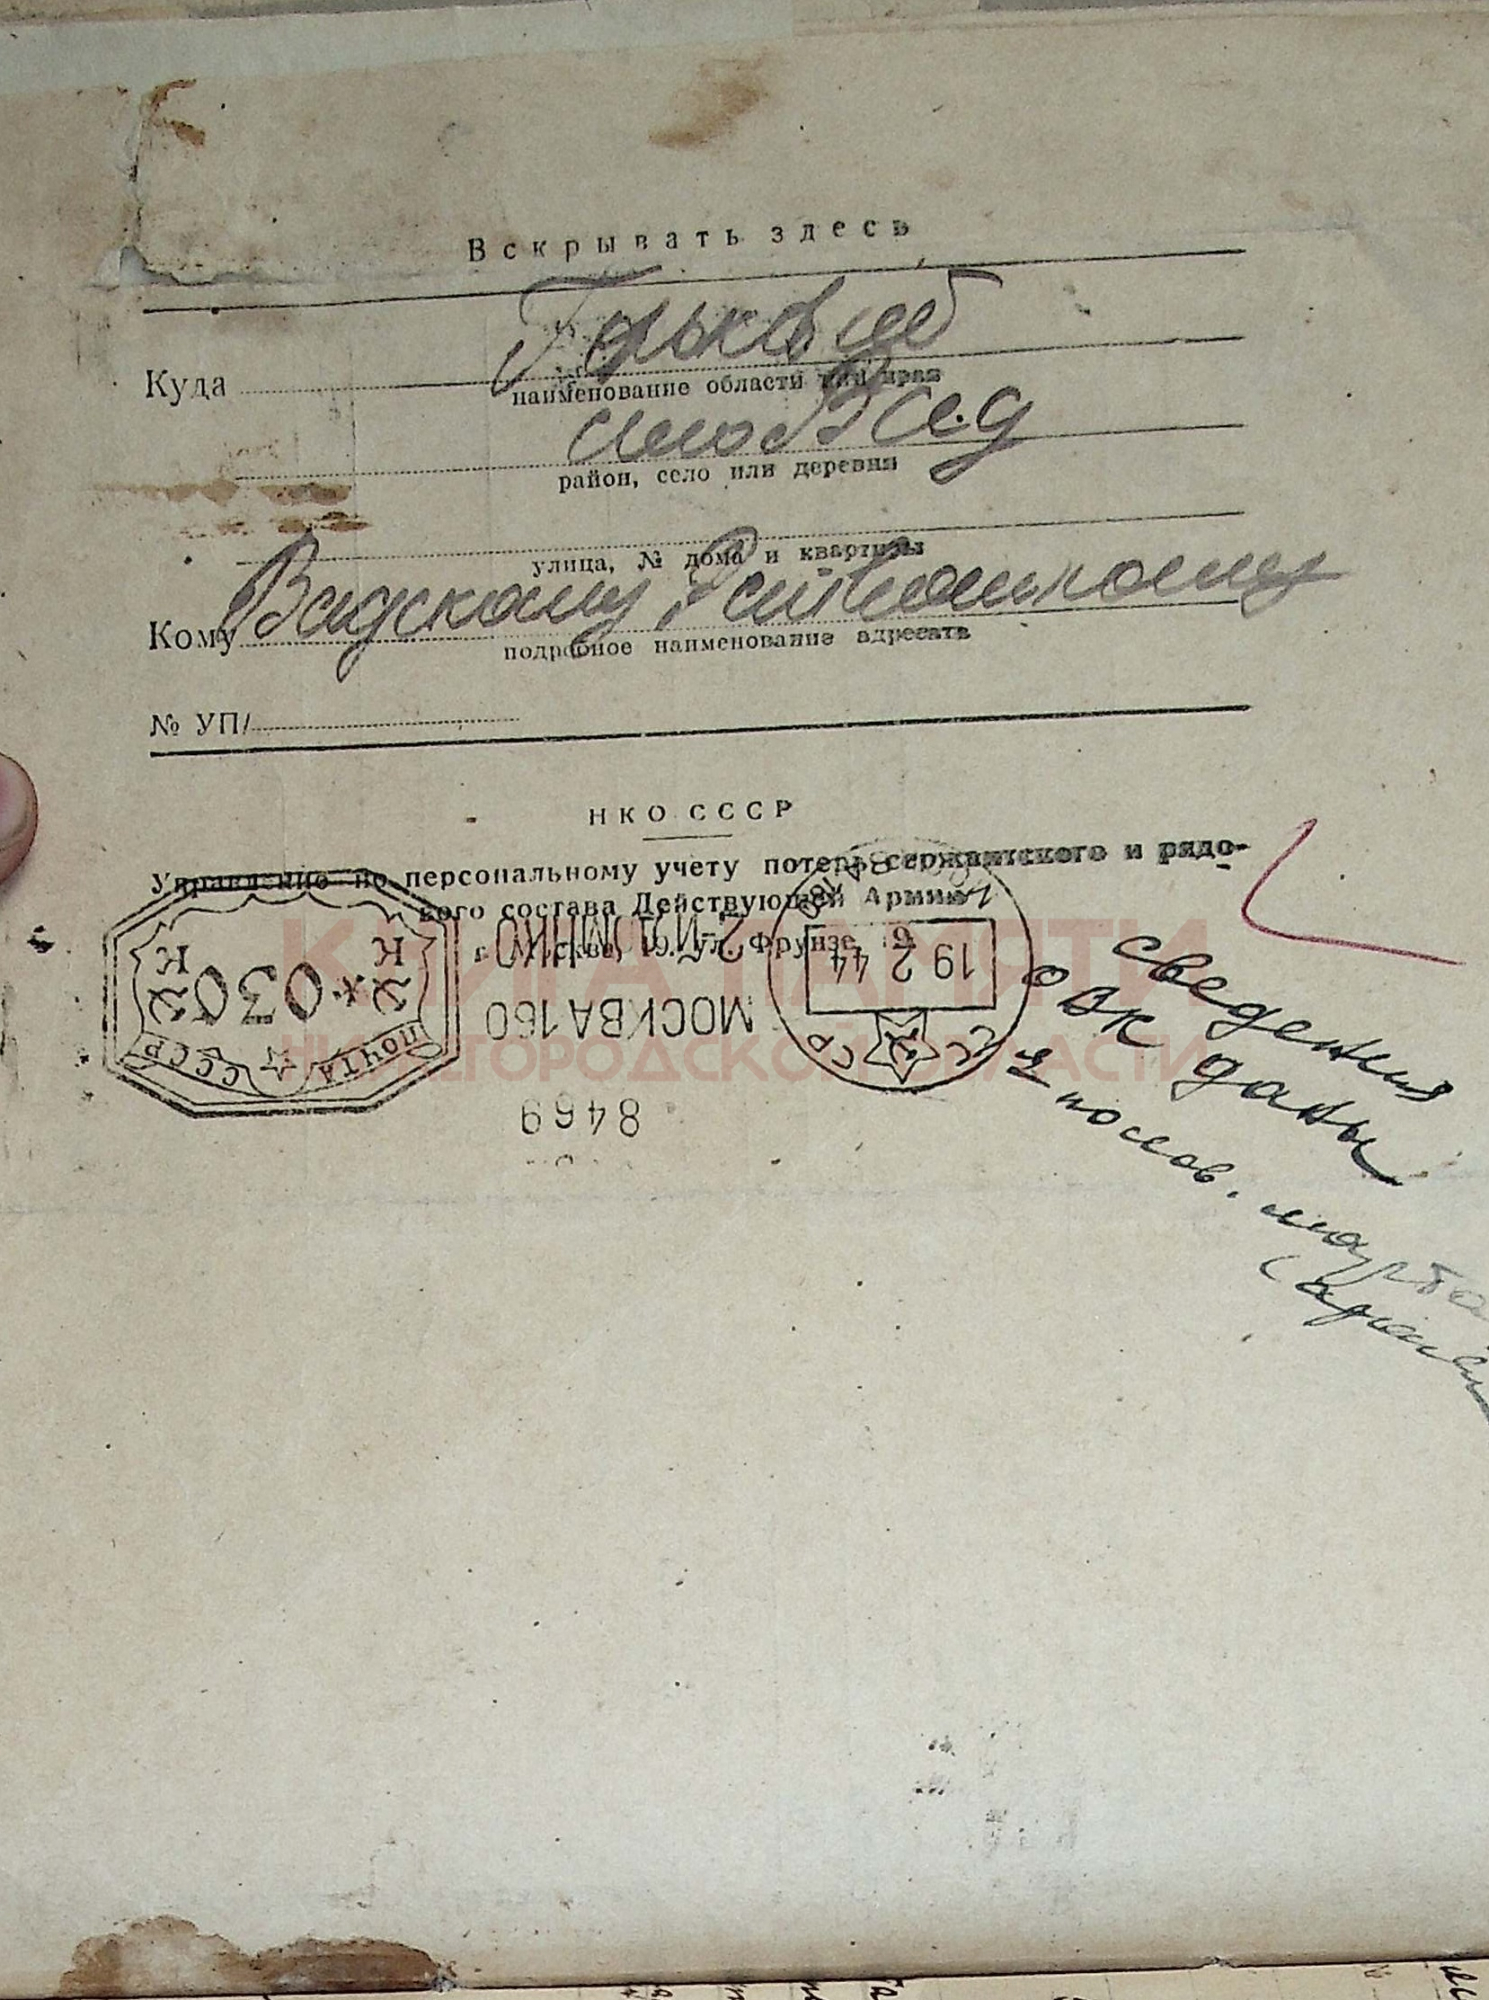 Вскрывать здесь
Куда
Горьков об
наименование области или края
село Вад
район, село или деревня
улица, № дома и квартиры
Кому Вадскому Райвоенкому
подробное наименование адресата
№ УП/
НКО СССР
Управление по персональному учету потерь сержантского и рядо-
вого состава Действующей Армии
г. Москва, 19. ул. Фрунзе,
2-И ДОМ НКО
МОСКВА 160
8469
ПОЧТА СССР
К К
030
19 2 44
СССР
КНИГА ПАМЯТИ
НИЖЕГОРОДСКОЙ ОБЛАСТИ
сведения
в ОВК даны
марта